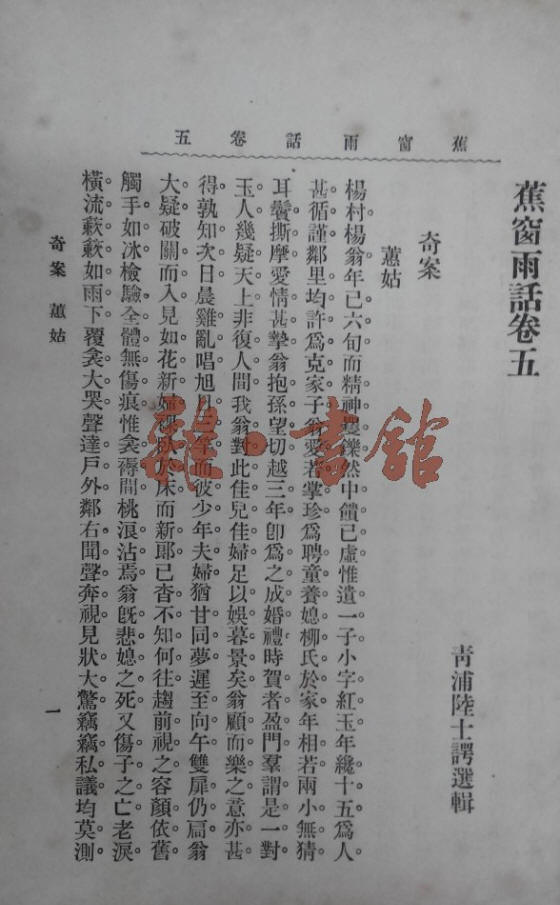 蕉窗雨話卷五
蕉窗雨話卷五
青浦陸士諤選輯
奇案
蕙姑
楊村楊翁年已六旬而精神矍鑠然中饋已虛惟遺一子小字紅玉年纔十五爲人
甚循謹鄰里均許爲克家子翁愛若掌珍爲聘童養媳柳氏於家年相若兩小無猜
耳鬢撕摩愛情甚摯翁抱孫望切越三年卽爲之成婚禮時賀者盈門羣謂是一對
玉人幾疑天上非復人間我翁對此佳兒佳婦足以娛暮景矣翁顧而樂之意亦甚
得孰知次日晨雞亂唱旭日三竿而彼少年夫婦猶甘同夢遲至向午雙扉仍扃翁
大疑破關而入見如花新婦 臥於床而新郎已杳不知何往趨前視之容顏依舊
觸手如冰檢驗全體無傷痕惟衾褥間桃浪沾焉翁旣悲媳之死又傷子之亡老淚
橫流簌簌如雨下覆衾大哭聲達戶外鄰右聞聲奔視見狀大驚竊竊私議均莫測
奇案 蕙姑
一
雅·書館